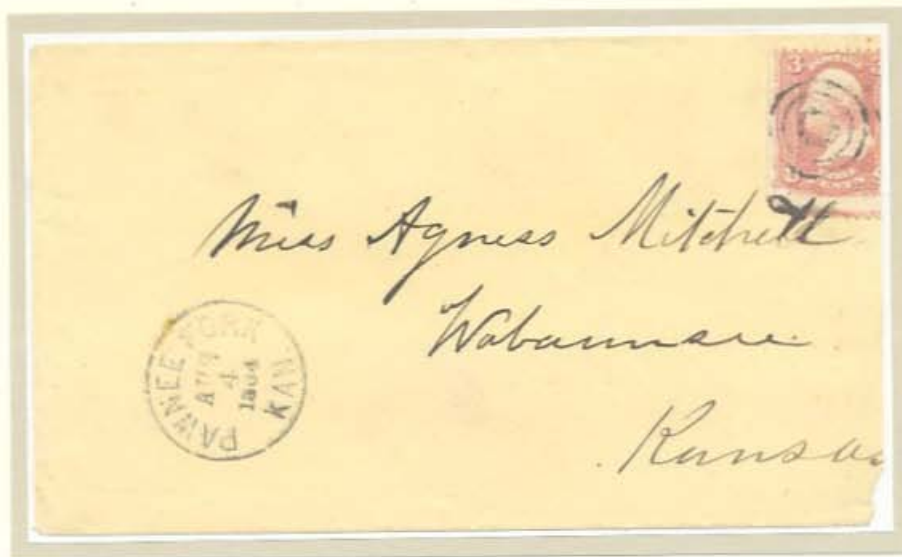 3
Miss Agness Mitchell
Wabaunsee
Kansas
PAWNEE FORK
AUG
4
1864
KAN